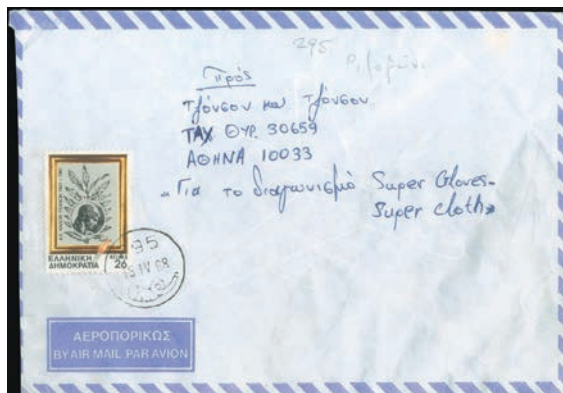 295
Πρός
Τζόνσον και Τζόνσον
ΤΑΧ ΘΥΡ. 30659
ΑΘΗΝΑ 10033
"Για το διαγωνισμό Super Gloves-
Super cloth"
ΕΛΛΗΝΙΚΗ
ΔΗΜΟΚΡΑΤΙΑ 26
95
IV 88
ΑΕΡΟΠΟΡΙΚΩΣ
BY AIR MAIL PAR AVION